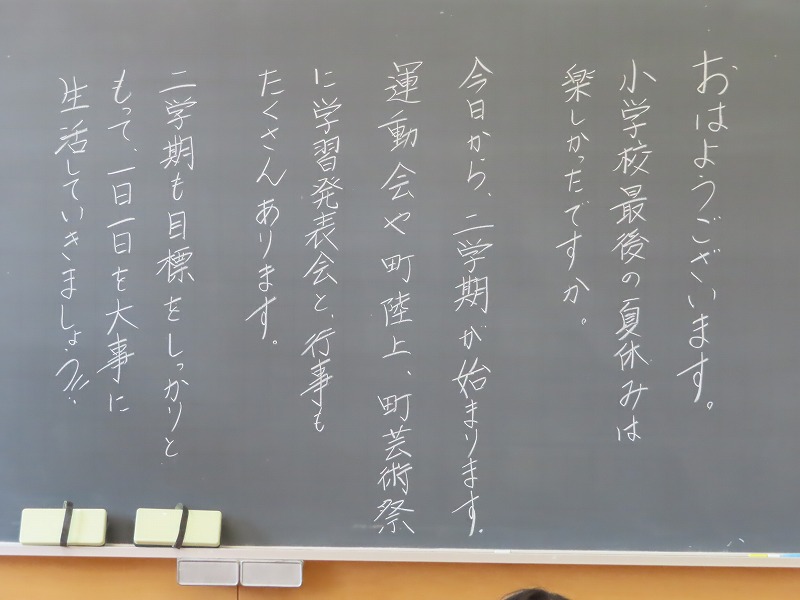 おはようございます。
小学校最後の夏休みは
楽しかったですか。
今日から、二学期が始まります。
運動会や町陸上、町芸術祭
に学習発表会と、行事も
たくさんあります。
二学期も目標をしっかりと
もって、一日一日を大事に
生活していきましょう!!